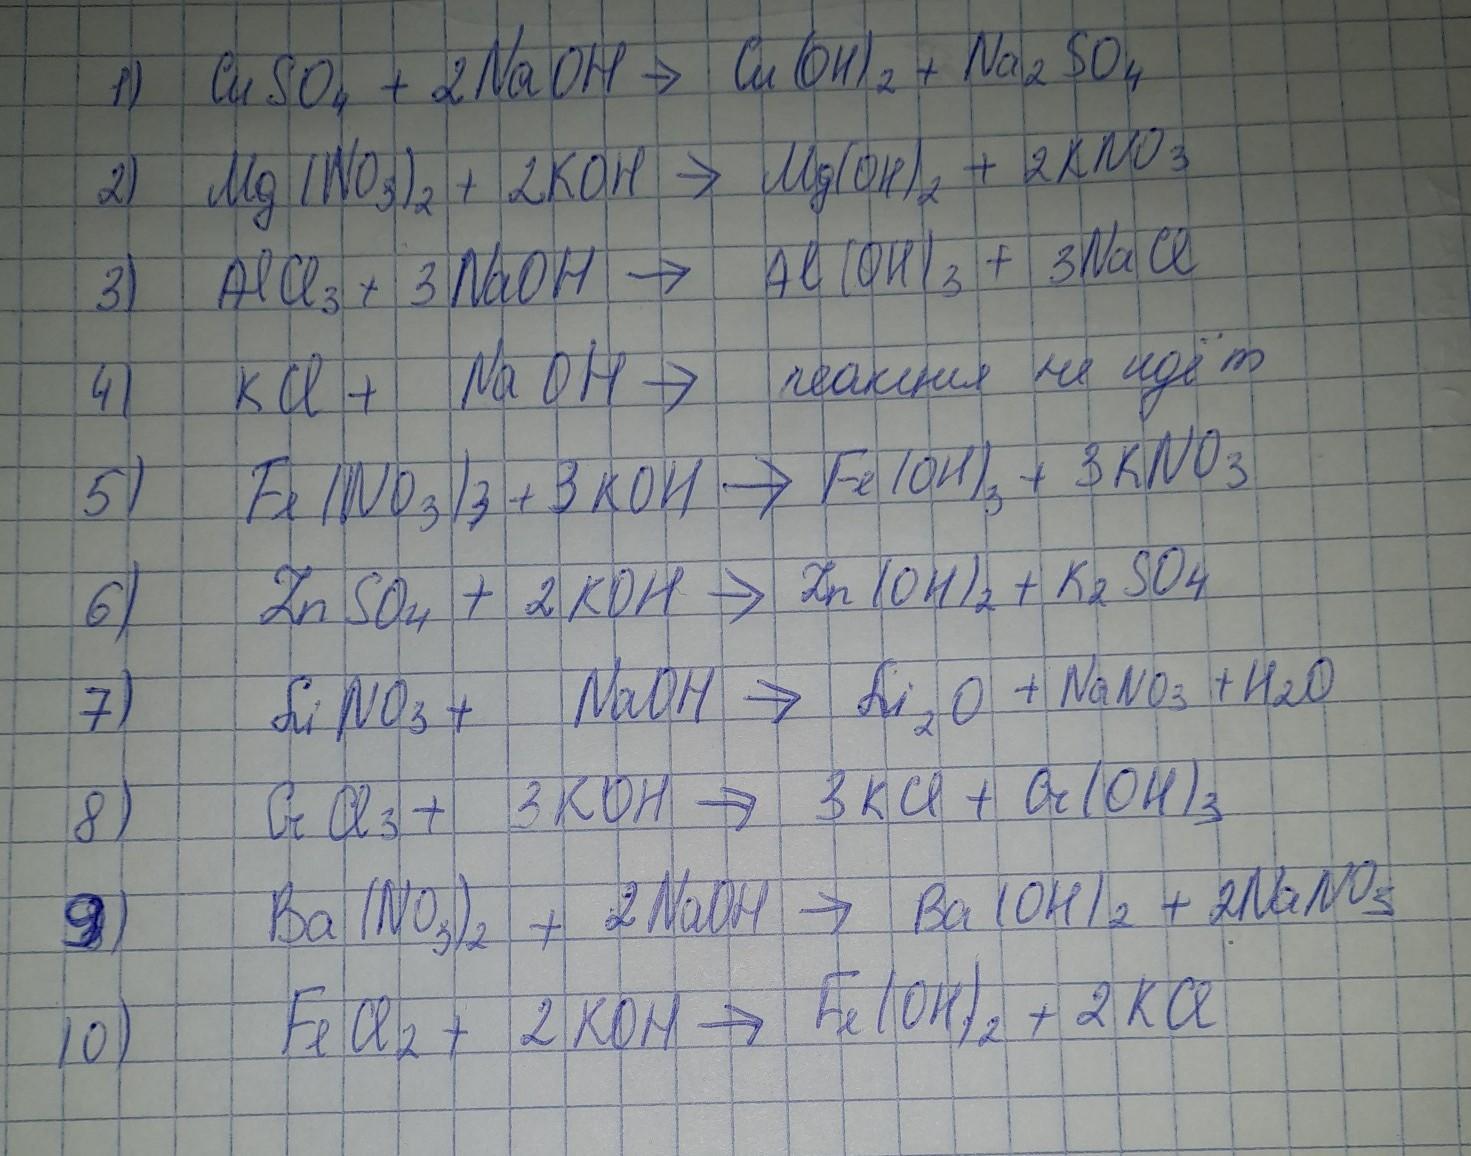 1) CuSO₄ + 2NaOH → Cu(OH)₂ + Na₂SO₄
2) Mg(NO₃)₂ + 2KOH → Mg(OH)₂ + 2KNO₃
3) AlCl₃ + 3NaOH → Al(OH)₃ + 3NaCl
4) KCl + NaOH → реакция не идёт
5) Fe(NO₃)₃ + 3KOH → Fe(OH)₃ + 3KNO₃
6) ZnSO₄ + 2KOH → Zn(OH)₂ + K₂SO₄
7) LiNO₃ + NaOH → Li₂O + NaNO₃ + H₂O
8) CrCl₃ + 3KOH → 3KCl + Cr(OH)₃
9) Ba(NO₃)₂ + 2NaOH → Ba(OH)₂ + 2NaNO₃
10) FeCl₂ + 2KOH → Fe(OH)₂ + 2KCl